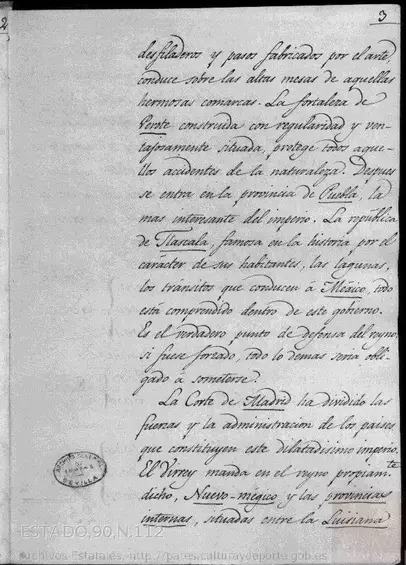 2
3
desfiladeros y pasos fabricados por el arte,
conduce sobre las altas mesas de aquellas
hermosas comarcas. La fortaleza de
Perote construida con regularidad y ven-
tajosamente situada, protege todos aque-
llos accidentes de la naturaleza. Despues
se entra en la provincia de Puebla, la
mas interesante del imperio. La republica
de Tlascala, famosa en la historia por el
carácter de sus habitantes, las lagunas,
los tránsitos que conducen á México, todo
está comprendido dentro de este gobierno.
Es el verdadero punto de defensa del reyno;
si fuese forzado, todo lo demas seria obli-
gado á someterse.
La Corte de Madrid ha dividido las
fuerzas y la administracion de los paises
que constituyen este dilatadisimo imperio.
El Virrey manda en el reyno propiamte
dicho, Nuevo-mégico y las provincias
internas, situadas entre la Luisiana
SEVILLA
ESTADO,90,N.112
Archivos Estatales, http://pares.culturaydeporte.gob.es